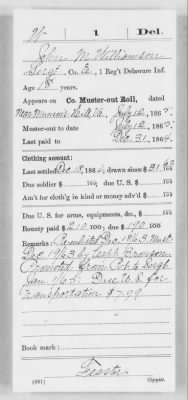 W | 1 | Del.
John M. Williamson
Sergt., Co. , 1 Reg't Delaware Inf.
Age 18 years.
Appears on Co. Muster-out Roll, dated
Near Munsons Hill, Va., July 12, 1865.
Muster-out to date July 12, 1865.
Last paid to Dec. 31, 1864.
Clothing account:
Last settled Dec. 18, 1864; drawn since $ 31
Due soldier $ 100; due U. S. $ 100
Am't for cloth'g in kind or money adv'd $ 100
Due U. S. for arms, equipments, &c., $ 100
Bounty paid $ 210 100; due $ 190 100
Remarks: Re-enlisted Dec. 1863. Must.
Dec. 1863 by Capt.
Promoted from Corp. to Sergt.
Jan. Due U. S. for
transportation $7.99
Book mark:
(361) Copyist.